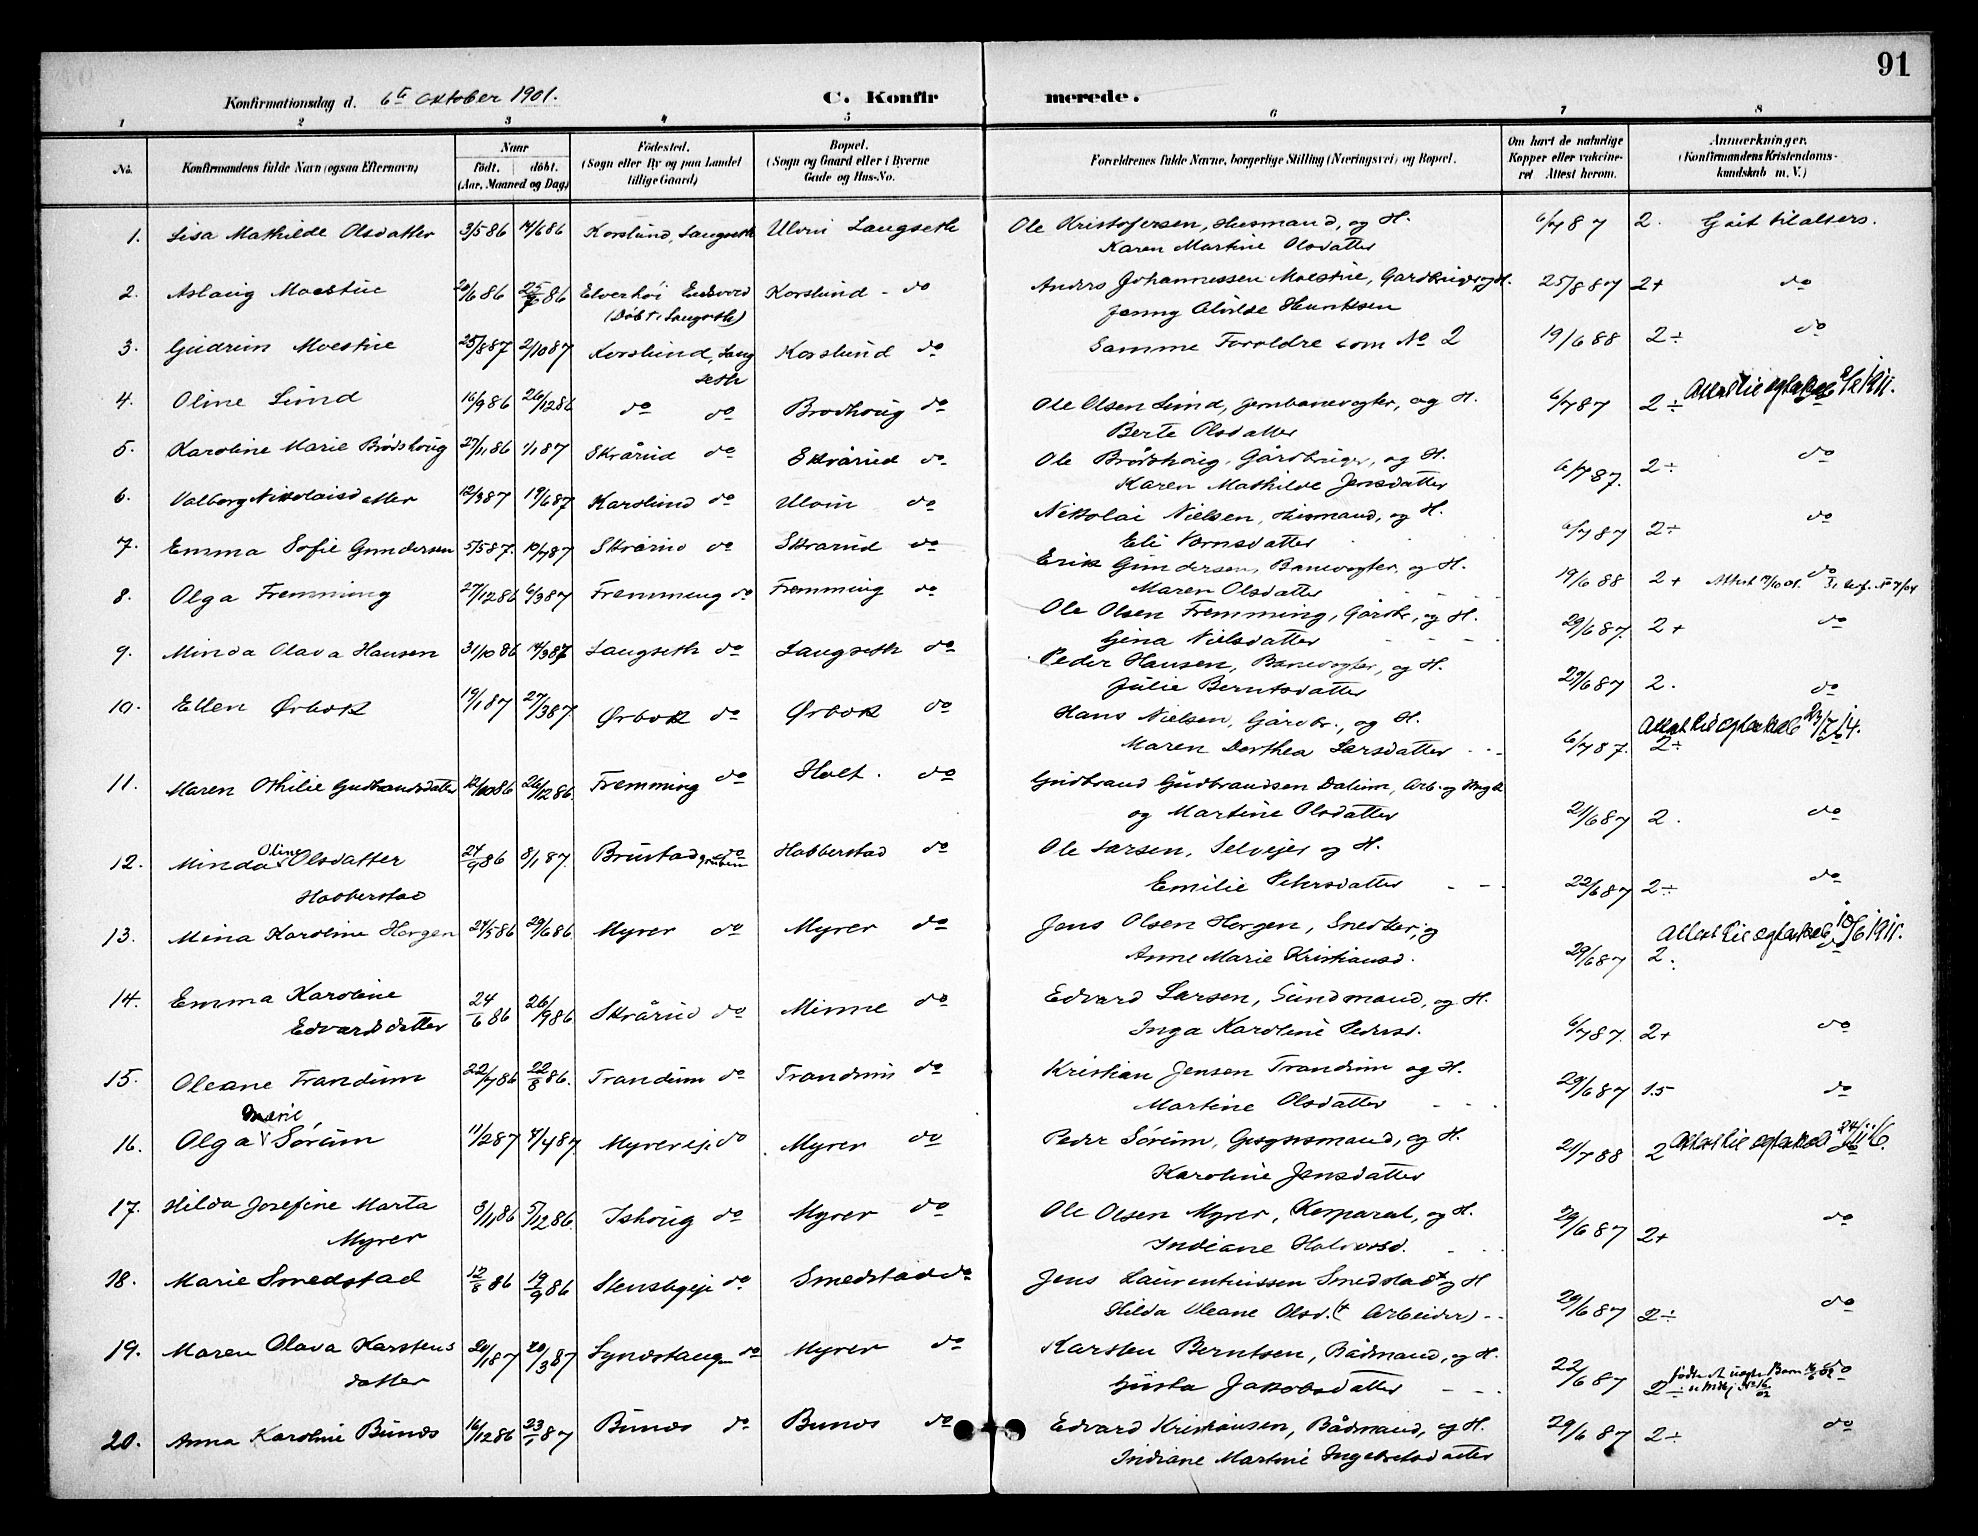 91
Konfirmationsdag d. 6te Oktober 1901. C. Konfirmerede.
1 2 3 4 5 6 7 8
No. Konfirmandens fulde Navn (ogsaa Efternavn) Naar født. døbt. (Aar, Maaned og Dag) Fødested. (Sogn eller By og paa Landet tillige Gaard) Bopæl. (Sogn og Gaard eller i Byerne Gade og Hus-No. Forældrenes fulde Navne, borgerlige Stilling (Næringsvei) og Bopæl. Om havt de naturlige Kopper eller vakcineret Attest herom. Anmærkninger. (Konfirmandens Kristendomskundskab m. V.)
1. Lisa Mathilde Olsdatter 3/5 86 14/6 86 Korslund, Langseth Ulvin Langseth Ole Kristofersen, Husmand, og H. 6/7 87 2. Gået til alters.
Karen Martine Olsdatter
2. Aslaug Moestue 20/6 86 25/7 86 Elverhöi Eidsvold Korslund - do Anders Johannessen Moestue, Gardbruger, og H. 25/8 87 2+ do
(Döbt i Langseth) Jenny Alvilde
3. Gudrun Moestue 25/8 87 2/10 87 Korslund, Lang Korslund do Samme Foreldre som No 2 19/6 88 2÷ do
seth
4. Oline Lund 16/9 86 26/12 86 do do Brodhoug do Ole Olsen Lund, jernbanevogter, og H. 6/7 87 2÷
Berte Olsdatter
5. Karoline Marie Brodshoug 27/11 86 1/1 87 Skrårud do Skrårud do Ole Brodshoug, Gårdbruger, og H. 6/7 87. 2÷ do
Karen Mathilde Jensdatter
6. Valborg Nikolaisdatter 12/3 87 19/6 87 Korslund do Ulvin do Nikolai Nielsen, Husmand, og H. 6/7 87 2÷ do
Eli
7. Emma Sofie Gundersen 5/5 87. 10/7 87 Skrårud do Skrårud do Erik Gundersen, Banevogter, og H. 19/6 88 2+ do
Maren Olsdatter
8. Olga Fremming 27/12 86 6/3 87 Fremming do Fremming do Ole Olsen Fremming, Gårdbr., og H. 29/6 87. 2+ do
Gina Nielsdatter
9. Minda Olava Hansen 31/10 86 14/3 87 Langseth do Langseth do Peder Hansen, Banevogter, og H. 29/6 87 2. do
Julie Berntsdatter
10. Ellen Ørbok 19/1 87 27/3 87 Ørbok do Ørbok do Hans Nielsen, Gårdbr., og H. 6/7 87. 2÷
Maren Dorthea Larsdatter
11. Maren Othilie Gudbrandsdatter 12/10 86 26/12 86. Fremming do Holt. do Gudbrand Gudbrandsen Dalum, Arb. og
og Martine Olsdatter 21/6 87 2. do
12. Minda Oline Olsdatter 24/9 86 8/1 87. Brustad do Habberstad do Ole Larsen, Selveier og H.
Habberstad Emilie Pehrsdatter 22/6 87 2÷ do
13. Mina Karoline Horgen 24/5 86 29/6 86 Myrer do Myrer do Jens Olsen Horgen, Snedker, og
Anne Marie Kristiansd. 29/6 87 2÷
14. Emma Karoline 24/6 86 26/9 86 Skrårud do Minne do Edvard Larsen, Sundmand, og H.
Edvardsdatter Inga Karoline Pedersd. 6/7 87. 2+ do
15. Oleane Trandum 22/7 86 22/8 86. Trandum do Trandum do Kristian Jensen Trandum og H.
Martine Olsdatter 29/6 87 1.5 do
16. Olga Marie Sörum 11/2 87 11/4 87 Myrereje do Myrer do Peder Sörum, Gusgutsmand, og H. 21/7 88 2
Karoline Jensdatter
17. Hilda Josefine Marta 3/11 86 5/12 86. Ishoug do Myrer do Ole Olsen Myrer, Korporal, og H.
Myrer Indiane Halvorsd. 29/6 87 2+ do
18. Marie Smedstad 12/8 86 19/9 86 Stensbyeje do Smedstad do Jens Laurentiussen Smedstad + og H
Hilda Oleane Olsd. († Arbeider) 29/6 87 2÷ do
19. Maren Olava Karstens 20/1 87 20/3 87 do Myrer do Karsten Berntsen, Bådmand, og H.
datter Gusta Jakobsdatter 22/6 87 2÷ do
20. Anna Karoline Bunes 16/12 86 23/1 87 Bunes do Bunes do Edvard Kristiansen, Bådmand, og H. 29/6 87 2÷ do
Indiane Martine Ingebretsdatter